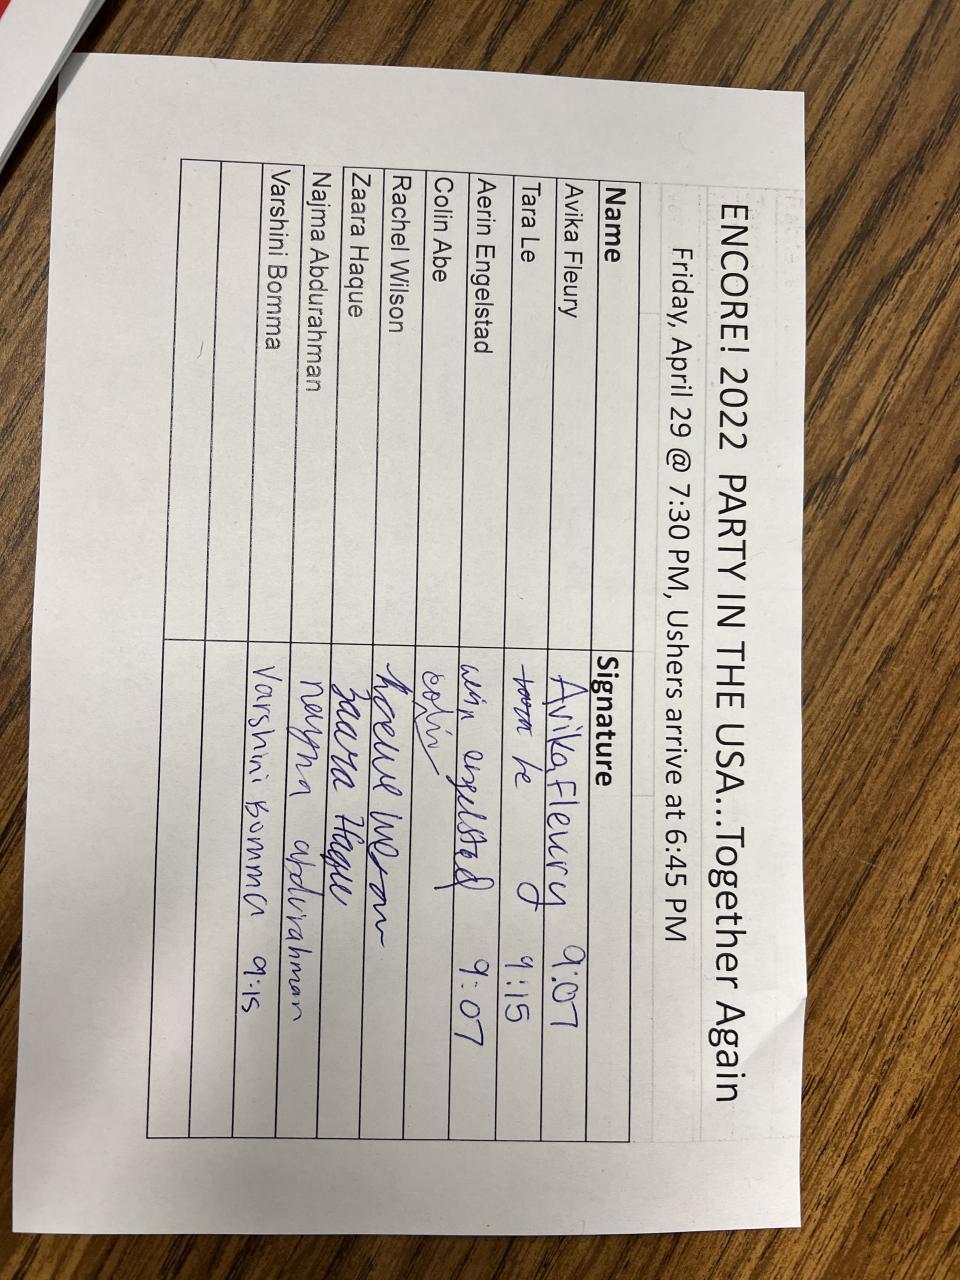 ENCORE! 2022 PARTY IN THE USA...Together Again
Friday, April 29 @ 7:30 PM, Ushers arrive at 6:45 PM
Name Signature
Avika Fleury Avika Fleury 9:07
Tara Le tara le 9:15
Aerin Engelstad aerin engelstad 9:07
Colin Abe colin
Rachel Wilson Rachel Wilson
Zaara Haque Zaara Haque
Najma Abdurahman najma abdurahman
Varshini Bomma Varshini Bomma 9:15